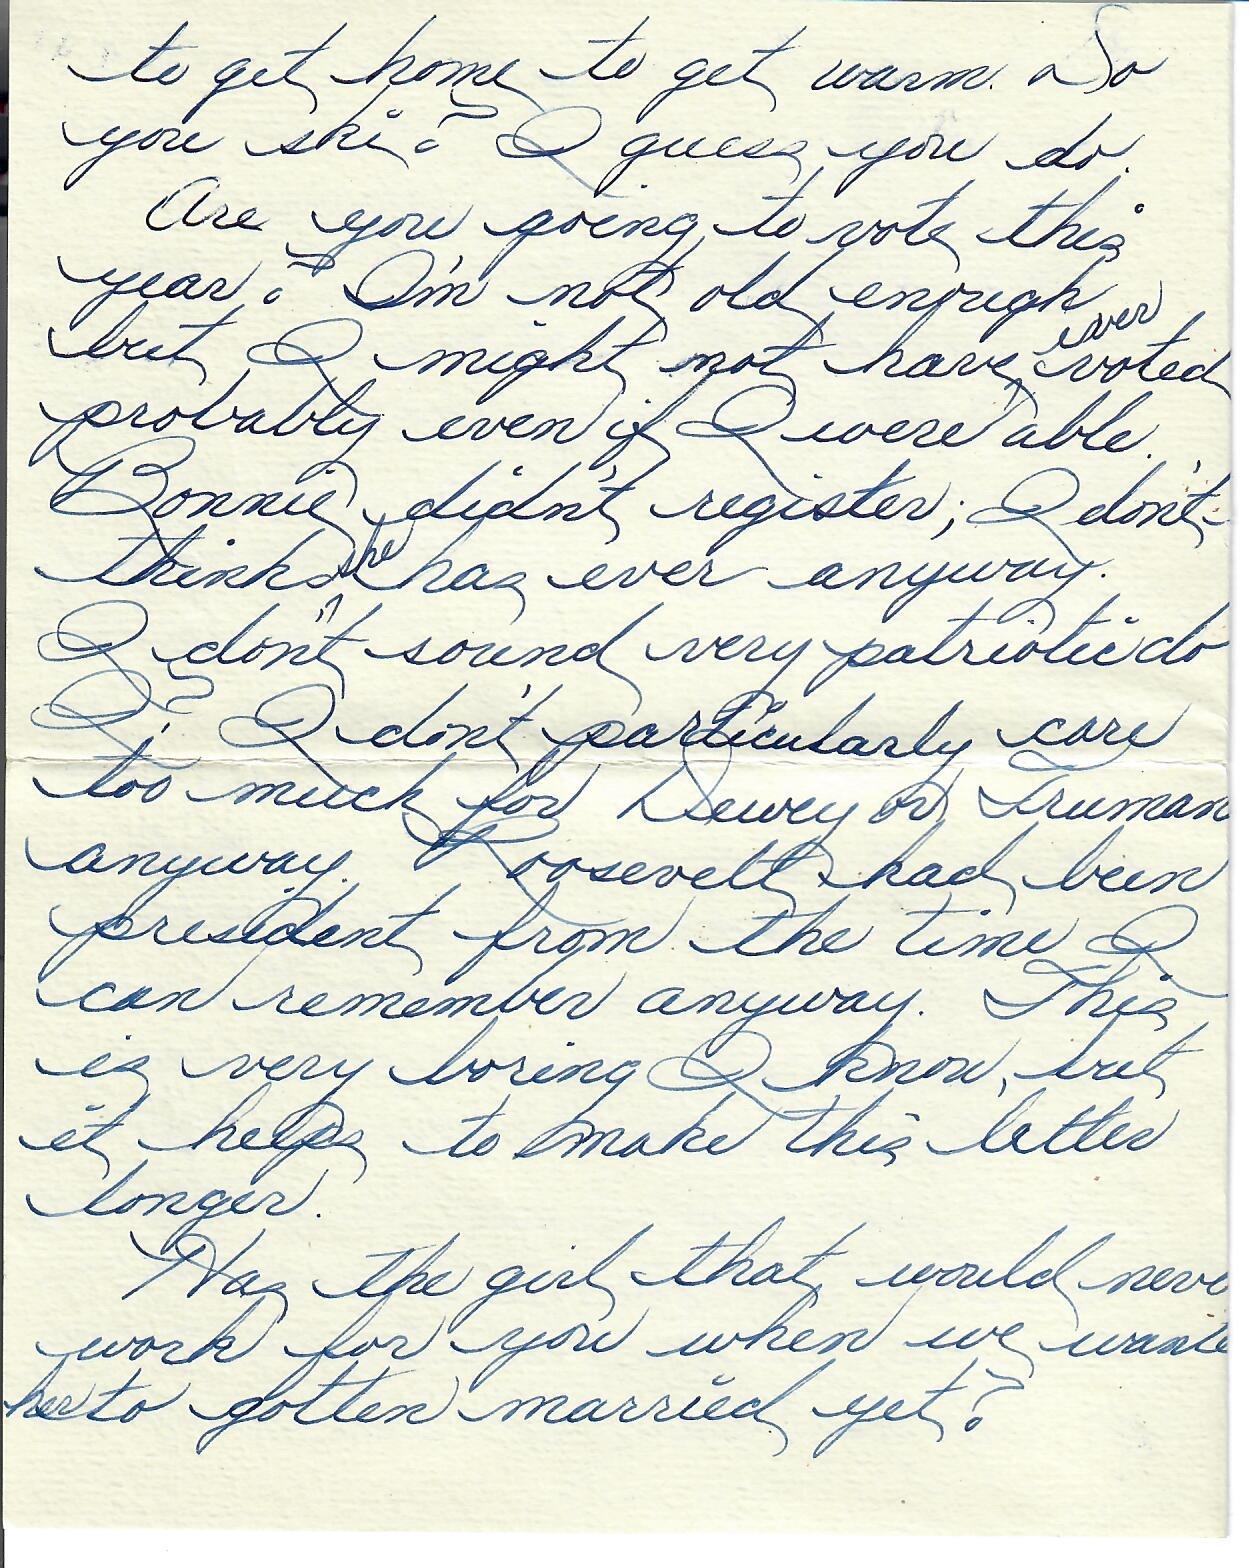 to get home to get warm. Do
you ski? I guess you do.
Are you going to vote this
year? I'm not old enough
but I might not have ever voted
probably even if I were able.
Bonnie didn't register; I don't
think she has ever anyway.
I don't sound very patriotic do
I? I don't particularly care
too much for Dewey or Truman
anyway. Roosevelt had been
president from the time I
can remember anyway. This
is very boring I know, but
it helps to make this letter
longer.
Has the girl that would neve
work for you when we wante
her to gotten married yet?